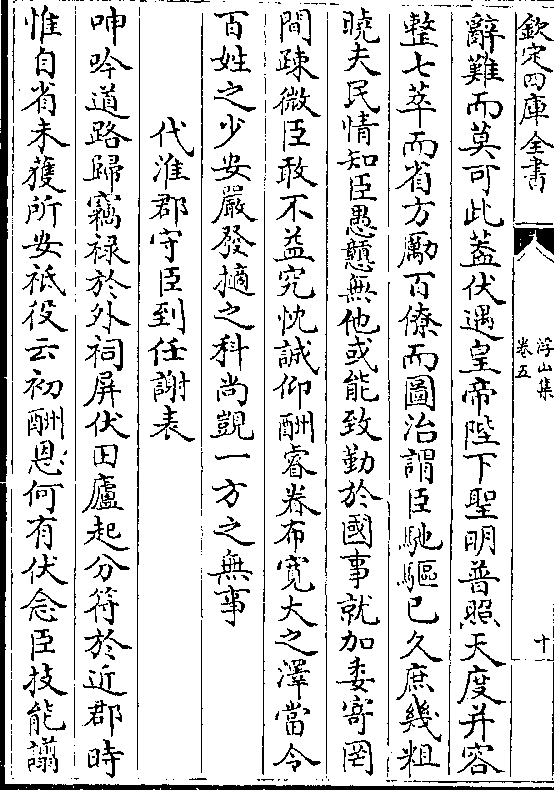 欽定四庫全書
浮山集
卷五
十
辭難而莫可此蓋伏遇皇帝陛下聖明普照天度并容
整七萃而省方勵百僚而圖治謂臣馳驅已久庶幾粗
曉夫民情知臣愚戇無他或能致勤於國事就加委寄罔
間疎微臣敢不益究忱誠仰酬睿眷布寛大之澤當令
百姓之少安嚴發擿之科尚覬一方之無事
代淮郡守臣到任謝表
呻吟道路歸竊禄於外祠屏伏田廬起分符於近郡時
惟自省未獲所安祗役云初酬恩何有伏念臣技能譾